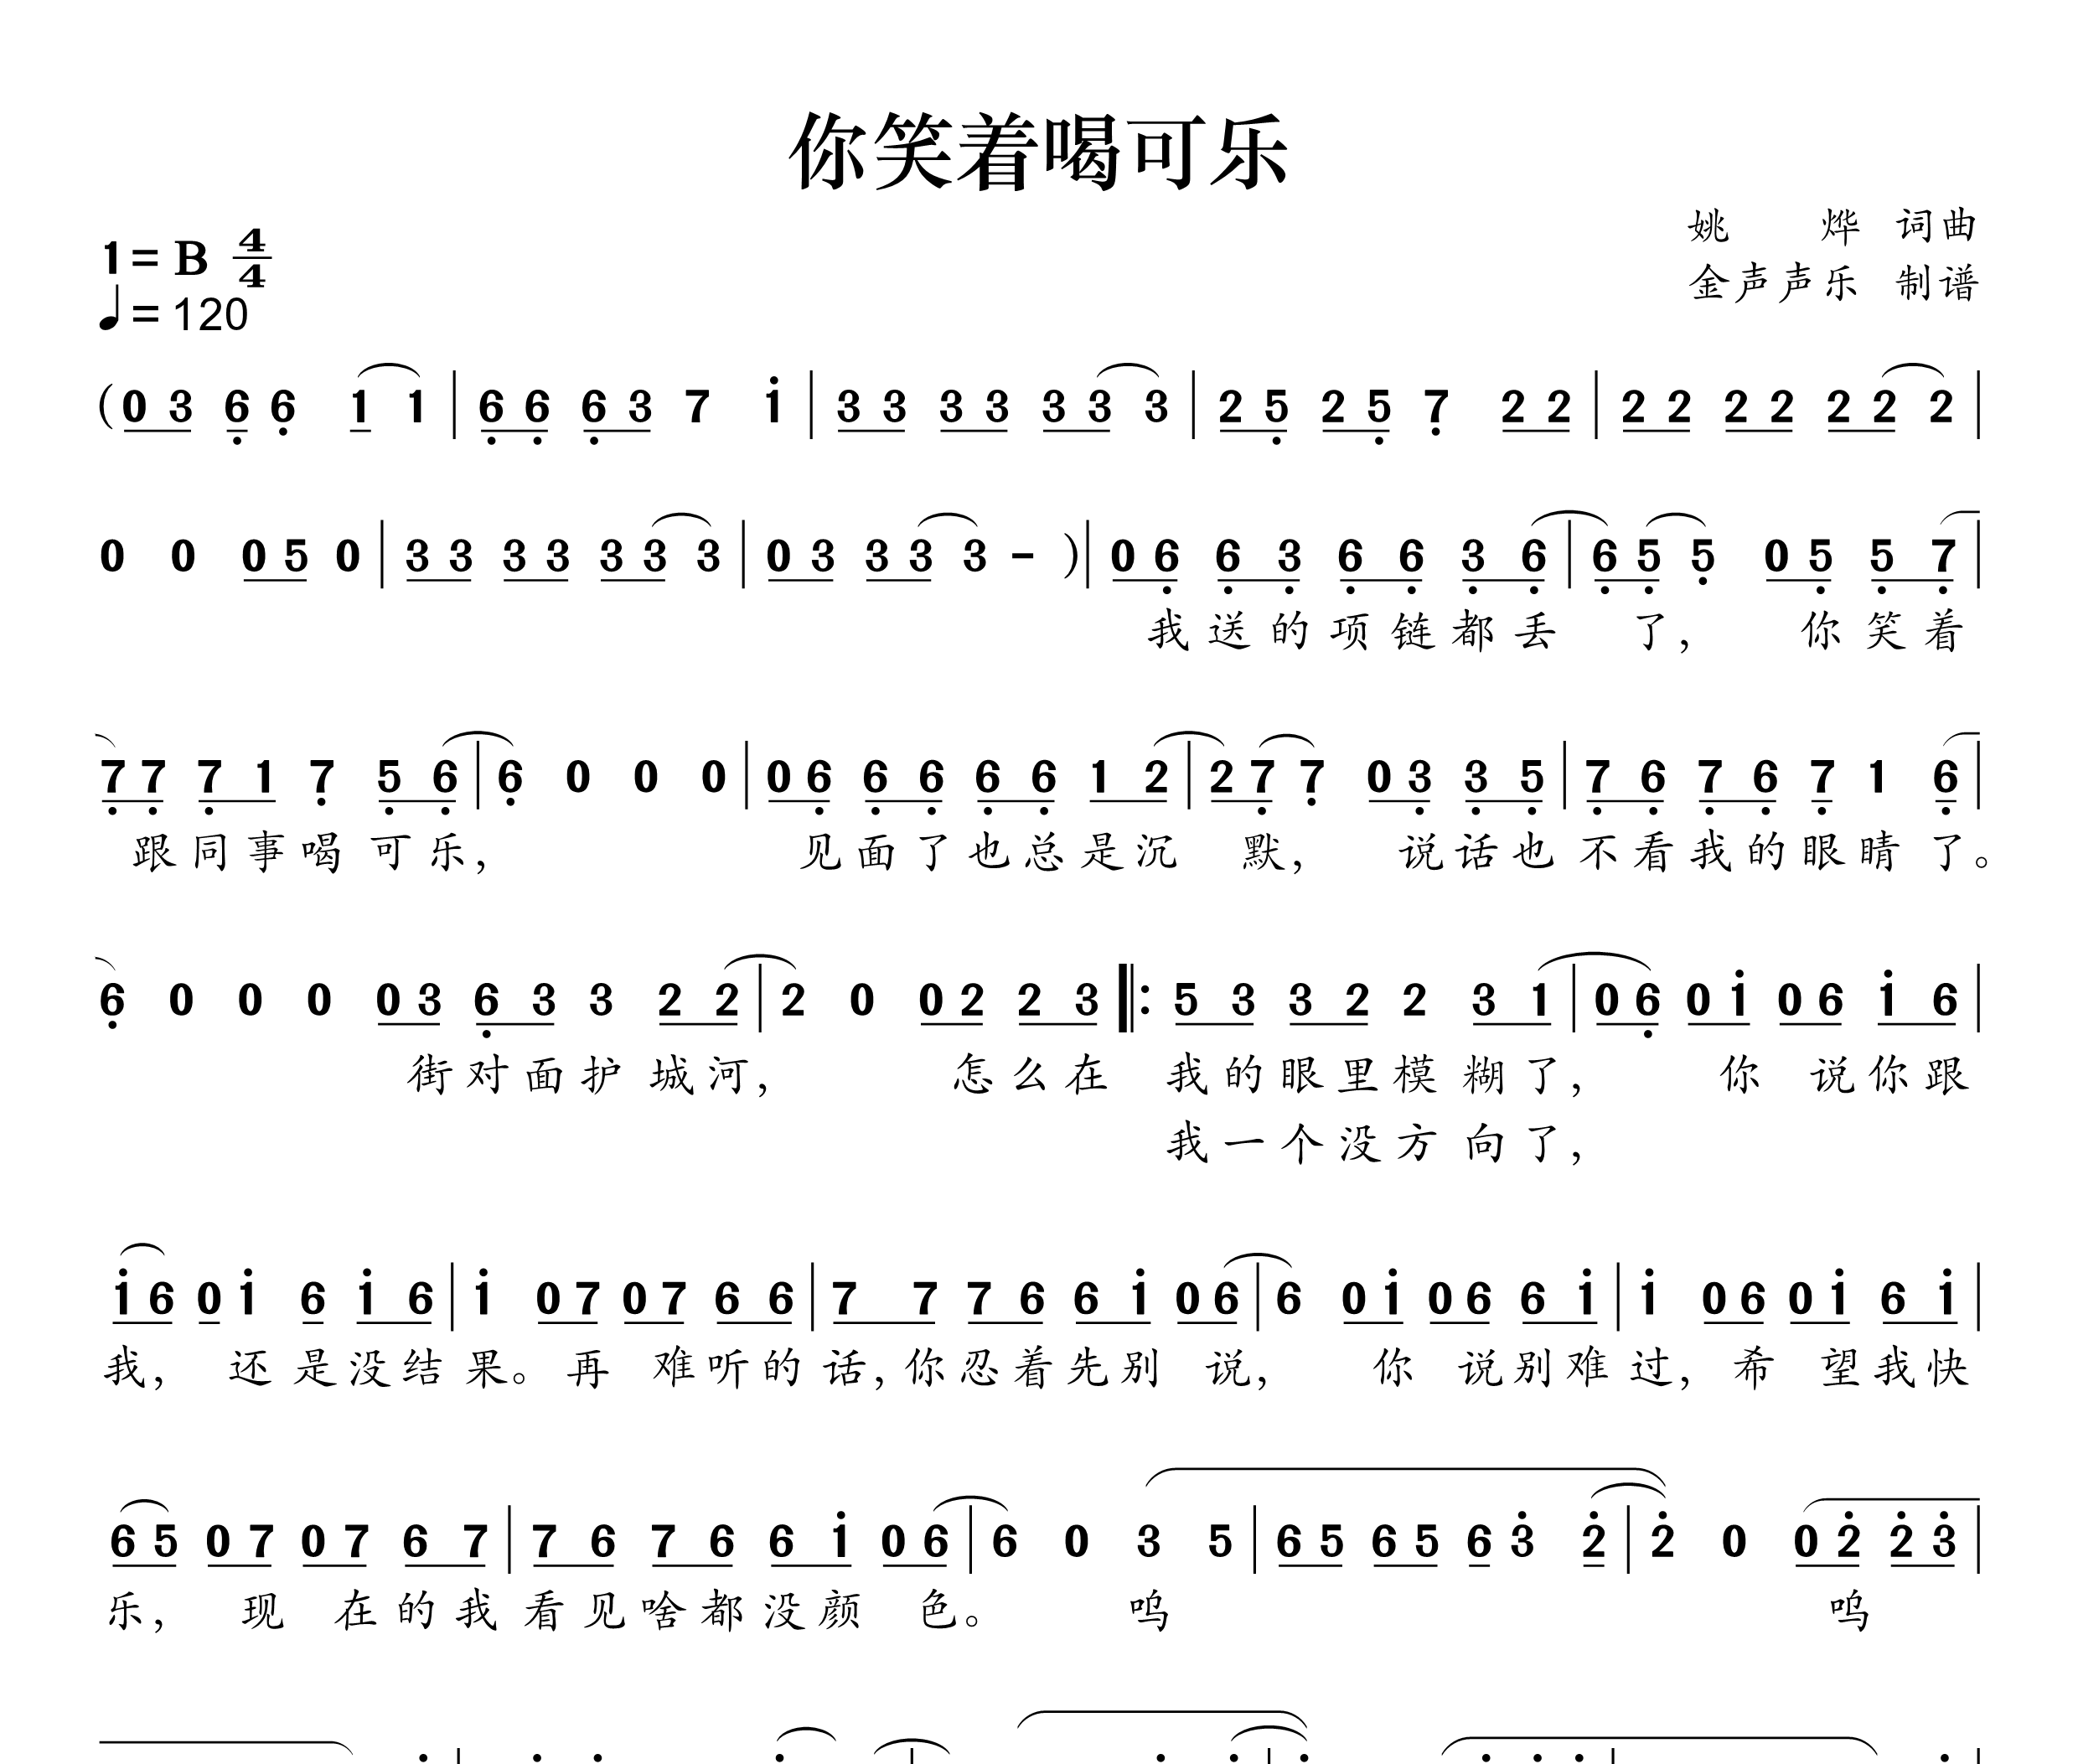 你笑着喝可乐
姚 烨 词曲
1= B 4/4
金声声乐 制谱
♩= 120
(0 3 6 6 1 1 | 6 6 6 3 7 i | 3 3 3 3 3 3 3 | 2 5 2 5 7 2 2 | 2 2 2 2 2 2 2 |
0 0 0 5 0 | 3 3 3 3 3 3 3 | 0 3 3 3 3 - )| 0 6 6 3 6 6 3 6 | 6 5 5 0 5 5 7 |
我送的项链都丢 了, 你笑着
7 7 7 1 7 5 6 | 6 0 0 0 | 0 6 6 6 6 6 1 2 | 2 7 7 0 3 3 5 | 7 6 7 6 7 1 6 |
跟同事喝可乐, 见面了也总是沉 默, 说话也不看我的眼睛了。
6 0 0 0 0 3 6 3 3 2 2 | 2 0 0 2 2 3 |: 5 3 3 2 2 3 1 | 0 6 0 i 0 6 i 6 |
街对面护城河, 怎么在 我的眼里模糊了, 你 说你跟
我一个没方向了,
i 6 0 i 6 i 6 | i 0 7 0 7 6 6 | 7 7 7 6 6 i 0 6 | 6 0 i 0 6 6 i | i 0 6 0 i 6 i |
我, 还是没结果。再 难听的话,你忍着先别 说, 你 说别难过, 希 望我快
6 5 0 7 0 7 6 7 | 7 6 7 6 6 i 0 6 | 6 0 3 5 | 6 5 6 5 6 3 2 | 2 0 0 2 2 3 |
乐, 现 在的我看见啥都没颜 色。 呜 呜